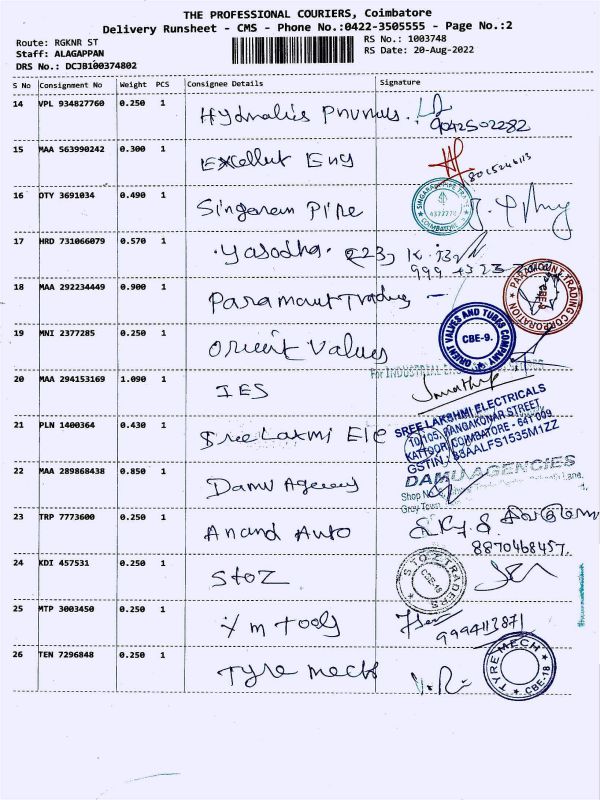 THE PROFESSIONAL COURIERS, Coimbatore
Delivery Runsheet - CMS - Phone No.:0422-3505555 - Page No.:2
Route: RGKNR ST
RS No.: 1003748
Staff: ALAGAPPAN
RS Date: 20-Aug-2022
DRS No.: DCJB100374802
S No Consignment No Weight PCS Consignee Details Signature
14 VPL 934827760 0.250 1 Hydralics Pnumals
9042502282
15 MAA 563990242 0.300 1 Excellent Eng
16 OTY 3691034 0.490 1 Singaram Pipe
SINGARAM PIPE TRADERS COIMBATORE
17 HRD 731066079 0.570 1 Yasodha
18 MAA 292234449 0.900 1 Paramaut Trading
PARAMOUNT TRADING CORPORATION
19 MNI 2377285 0.250 1 Orient Values
ORIENT VALVES AND TUBES COMPANY CBE-9.
20 MAA 294153169 1.090 1 IES
For INDUSTRIAL
21 PLN 1400364 0.430 1 Sree Laxmi Ele
SREE LAKSHMI ELECTRICALS
10/105, RANGAKONAR STREET,
KATTOOR, COIMBATORE - 641 009
GSTIN: 33AALFS1535M1ZZ
22 MAA 289868438 0.850 1 Damu Agency
DAMU AGENCIES
Shop No.
Gray Town,
23 TRP 7773600 0.250 1 Anand Auto
8870468457.
24 KDI 457531 0.250 1 StoZ
S TO Z TRADERS CBE-18
25 MTP 3003450 0.250 1 Y m Tools
9994113871
26 TEN 7296848 0.250 1 Tyre mech
TYRE MECH CBE-18